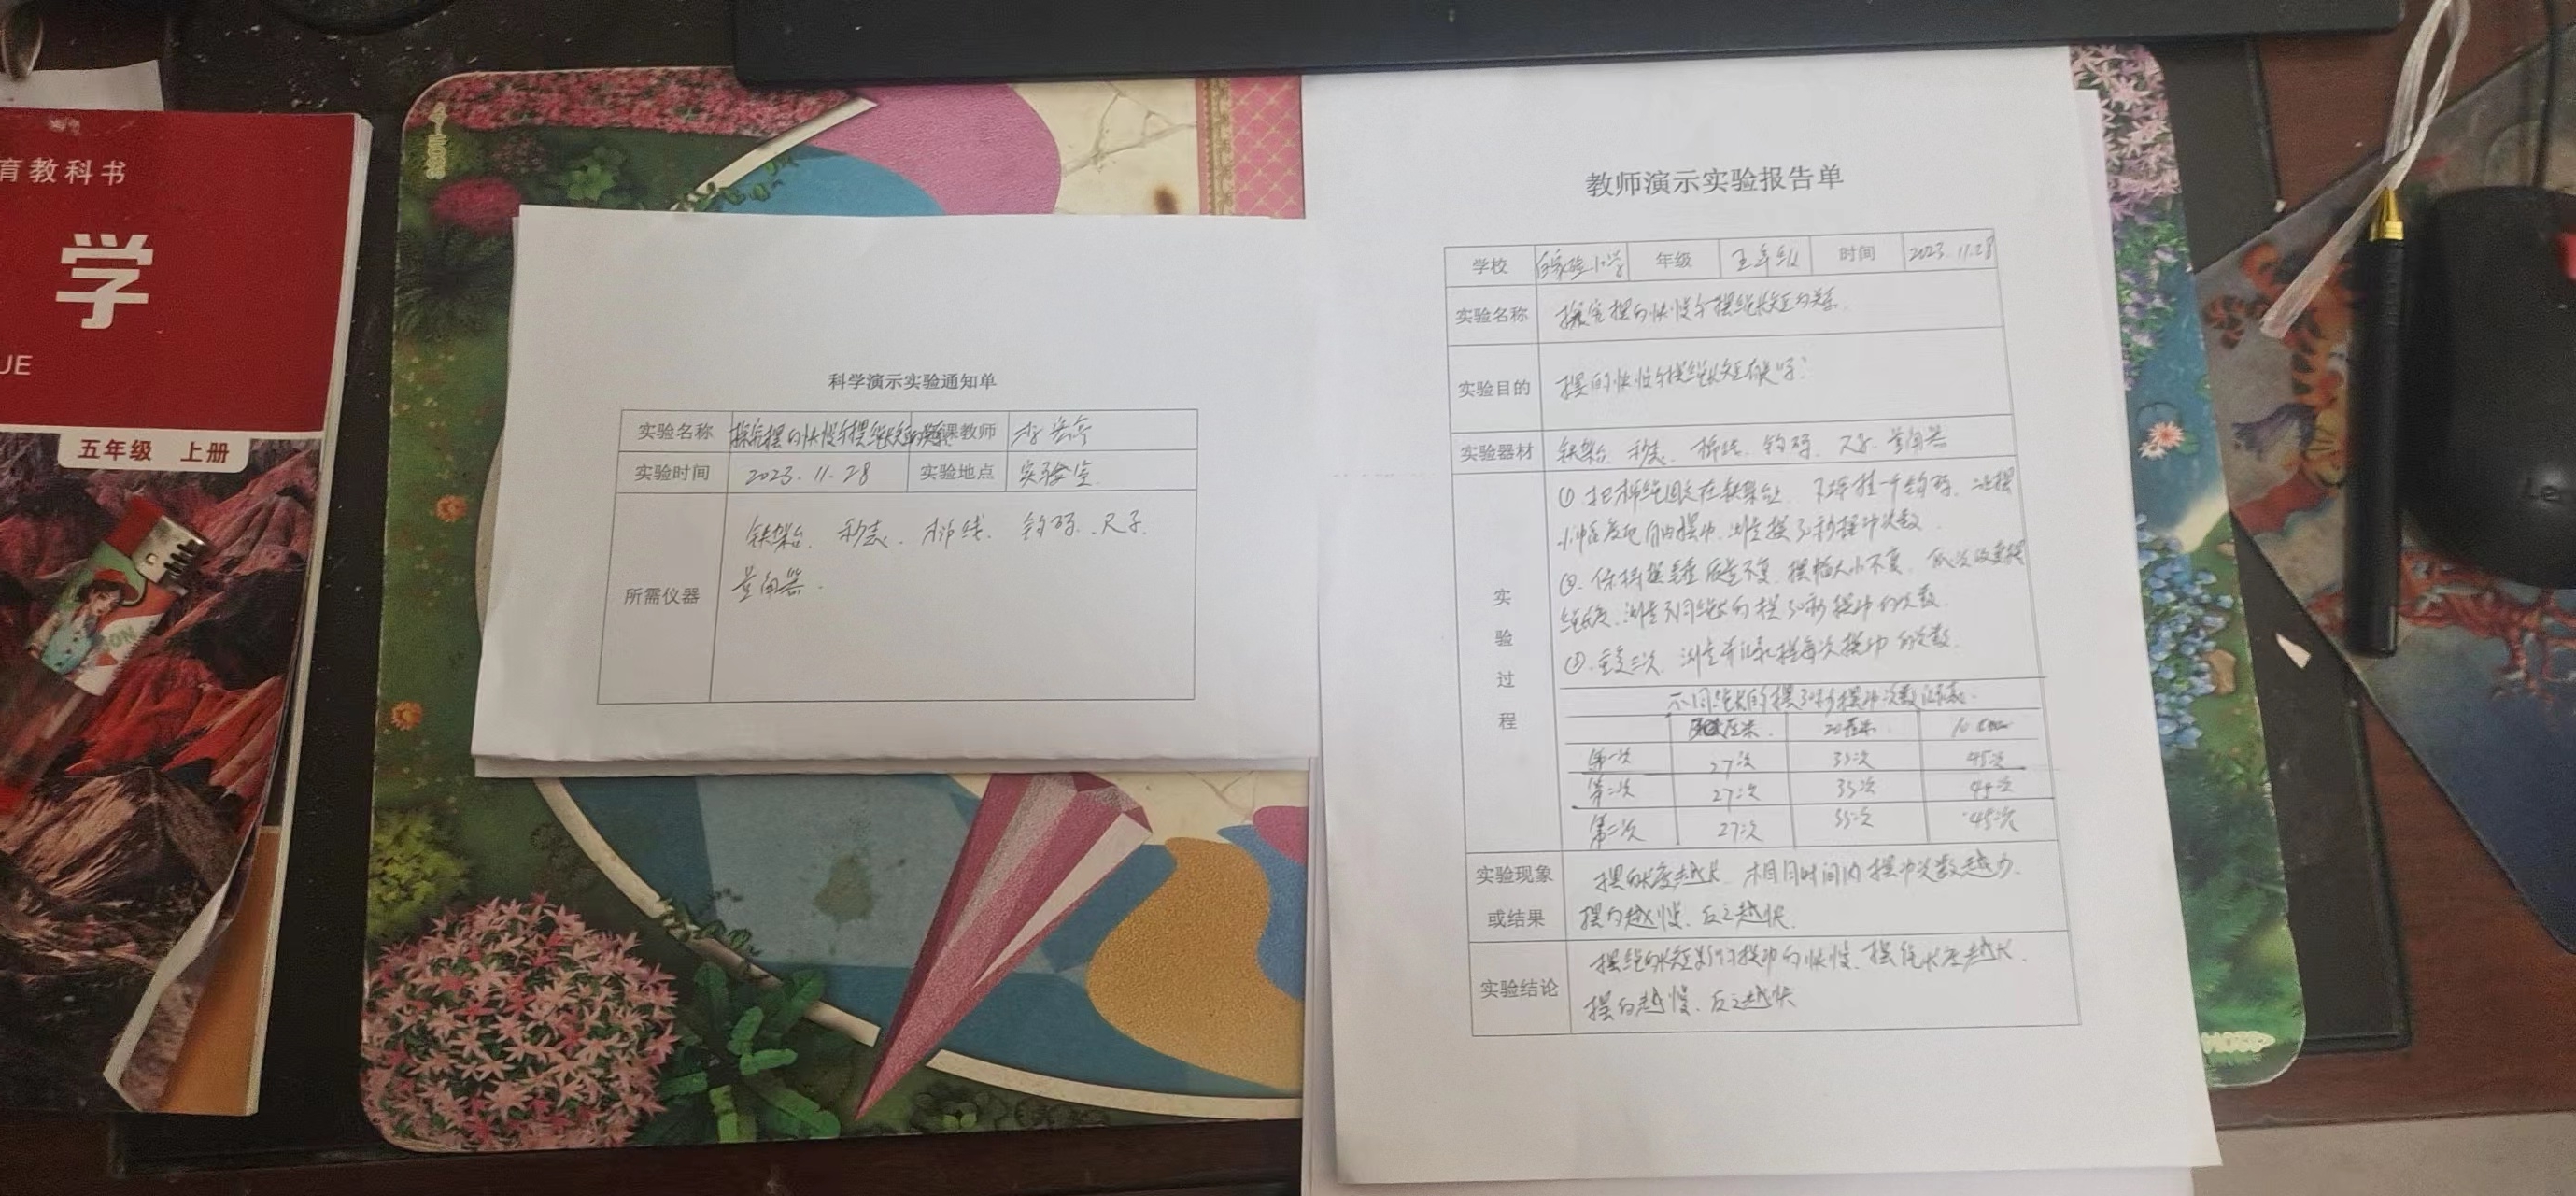 育教科书
学
UE
五年级 上册
科学演示实验通知单
实验名称 探究摆的快慢与摆绳长短的关系 课教师
实验时间 2023.11.28 实验地点 实验室
所需仪器 铁架台、秒表、棉线、钩码、尺子、
量角器.
教师演示实验报告单
学校 实验小学 年级 五年级 时间 2023.11.28
实验名称 探究摆的快慢与摆绳长短的关系.
实验目的 摆的快慢与摆绳长短有关吗?
实验器材 铁架台、秒表、棉线、钩码、尺子、量角器
实验过程
① 把棉绳固定在铁架台上、下端挂一个钩码、让摆
小幅度地自由摆动、测定摆30秒摆动次数.
②.保持摆锤质量不变、摆幅大小不变、依次改变摆
绳长度、测定不同绳长的摆30秒摆动的次数.
③.重复三次、测定并记录摆每次摆动的次数.
不同绳长的摆30秒摆动次数记录表.
厘米 20厘米 10
第一次 27次 33次 45次
第二次 27次 33次 44次
第三次 27次 33次 45次
实验现象 摆的长度越长、相同时间内摆动次数越少.
或结果 摆的越慢、反之越快.
摆绳的长短影响摆动的快慢、摆绳长度越长.
实验结论 摆的越慢、反之越快